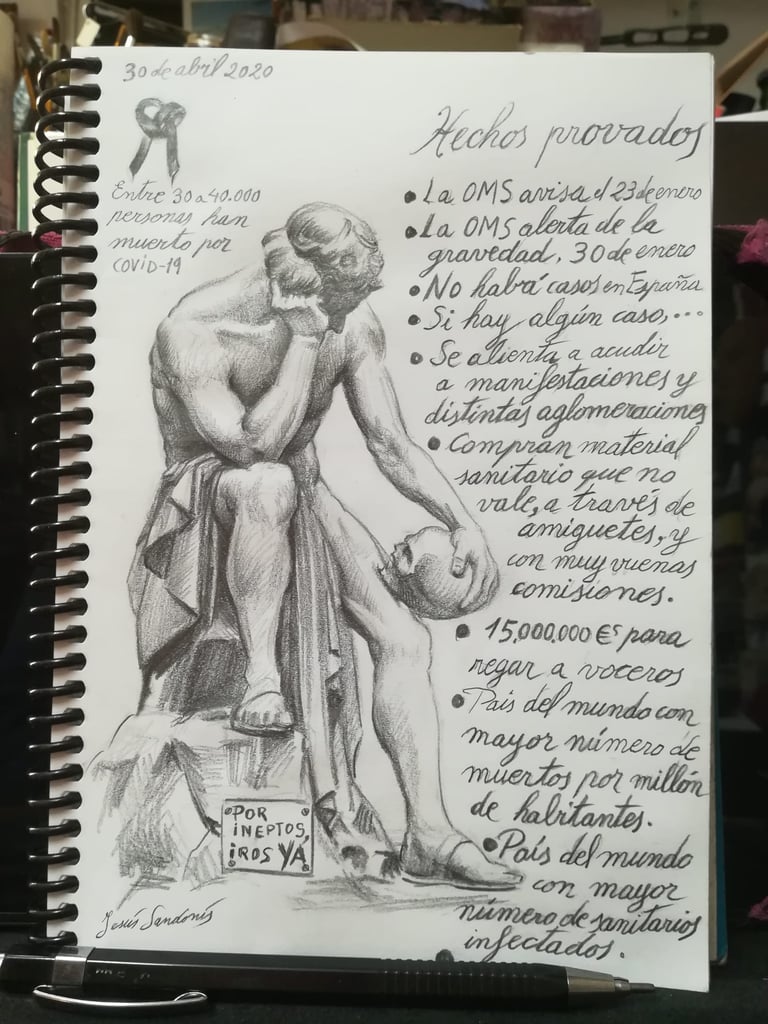 30 de abril 2020
Entre 30 a 40.000
personas han
muerto por
COVID-19
Hechos provados
• La OMS avisa el 23 de enero
• La OMS alerta de la
gravedad, 30 de enero
• No habrá casos en España
• Si hay algún caso,...
• Se alienta a acudir
a manifestaciones y
distintas aglomeraciones
• Compran material
sanitario que no
vale, a través de
amiguetes, y
con muy vuenas
comisiones.
• 15.000.000 €s para
regar a voceros
• País del mundo con
mayor número de
muertos por millón
de habitantes.
• País del mundo
con mayor
número de sanitarios
infectados.
POR
INEPTOS,
¡IROS YÁ
Jesús Sandonís